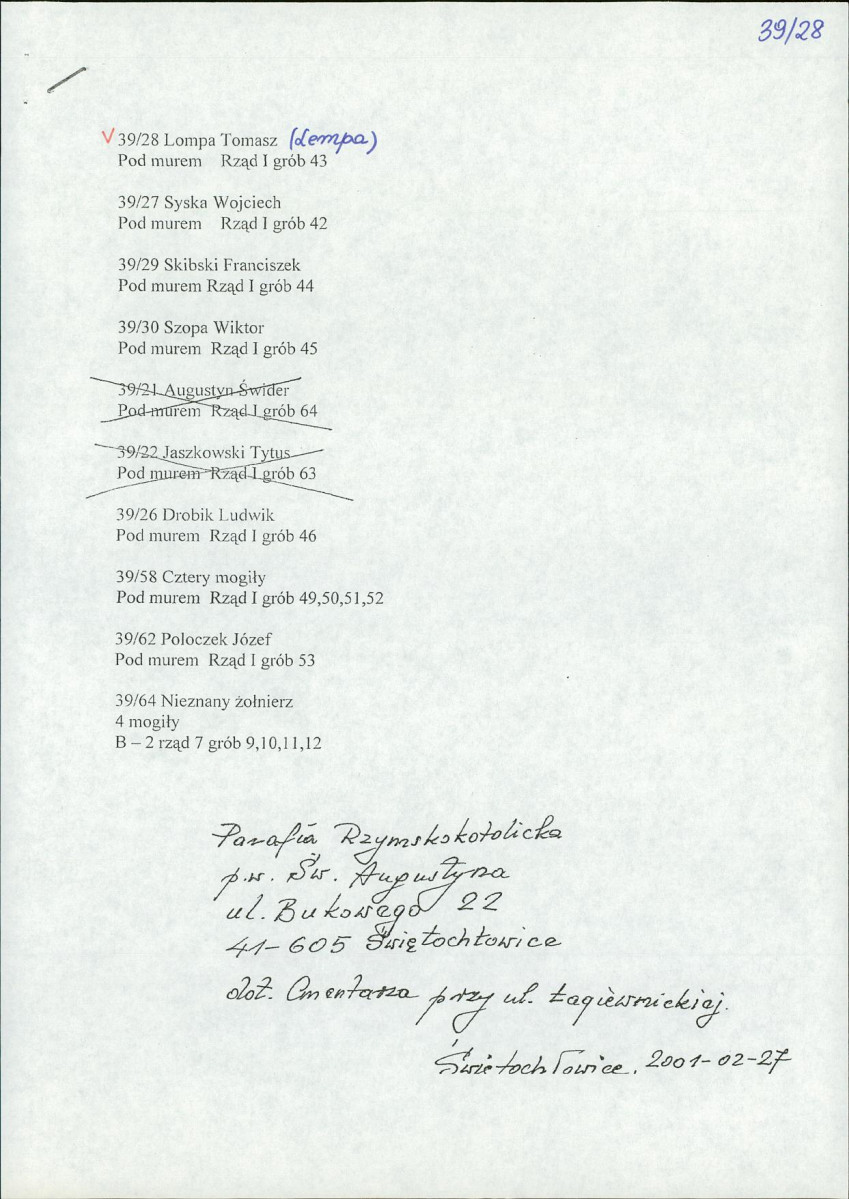 39/28
V 39/28 Lompa Tomasz (Lempa)
Pod murem Rząd I grób 43
39/27 Syska Wojciech
Pod murem Rząd I grób 42
39/29 Skibski Franciszek
Pod murem Rząd I grób 44
39/30 Szopa Wiktor
Pod murem Rząd I grób 45
39/21 Augustyn Świder
Pod murem Rząd I grób 64
39/22 Jaszkowski Tytus
Pod murem Rząd I grób 63
39/26 Drobik Ludwik
Pod murem Rząd I grób 46
39/58 Cztery mogiły
Pod murem Rząd I grób 49,50,51,52
39/62 Poloczek Józef
Pod murem Rząd I grób 53
39/64 Nieznany żołnierz
4 mogiły
B – 2 rząd 7 grób 9,10,11,12
Parafia Rzymskokotolicka
p.w. Św. Augustyna
ul. Bukowego 22
41-605 Świętochłowice
dot. Cmentarza przy ul. Łagiewnickiej.
Świetochłowice. 2001-02-27